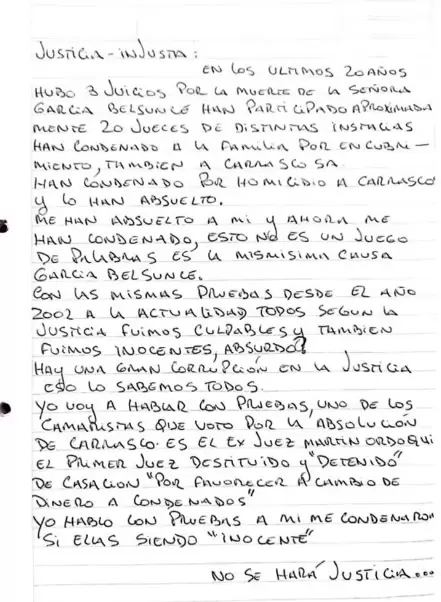 JUSTICIA - INJUSTA :
EN LOS ULTIMOS 20 AÑOS
HUBO 3 JUICIOS POR LA MUERTE DE LA SEÑORA
GARCIA BELSUNCE HAN PARTICIPADO APROXIMADA
MENTE 20 JUECES DE DISTINTAS INSTACIAS
HAN CONDENADO A LA FAMILIA POR ENCUBRI -
MIENTO, TAMBIEN A CARRASCOSA.
HAN CONDENADO POR HOMICIDIO A CARRASCO
Y LO HAN ABSUELTO.
ME HAN ABSUELTO A MI Y AHORA ME
HAN CONDENADO, ESTO NO ES UN JUEGO
DE PALABRAS ES LA MISMISIMA CAUSA
GARCIA BELSUNCE.
CON LAS MISMAS PRUEBAS DESDE EL AÑO
2002 A LA ACTUALIDAD TODOS SEGUN LA
JUSTICIA FUIMOS CULPABLES Y TAMBIEN
FUIMOS INOCENTES, ABSURDO?
HAY UNA GRAN CORRUPCIÓN EN LA JUSTICIA
ESO LO SABEMOS TODOS.
YO VOY A HABLAR CON PRUEBAS, UNO DE LOS
CAMARISTAS QUE VOTO POR LA ABSOLUCIÓN
DE CARRASCO. ES EL EX JUEZ MARTIN ORDOQUI
EL PRIMER JUEZ DESTITUIDO Y "DETENIDO"
DE CASACION "POR FAVORECER A CAMBIO DE
DINERO A CONDENADOS"
YO HABLO CON PRUEBAS A MI ME CONDENARON
SI ELLAS SIENDO "INOCENTE"
NO SE HARÁ JUSTICIA...